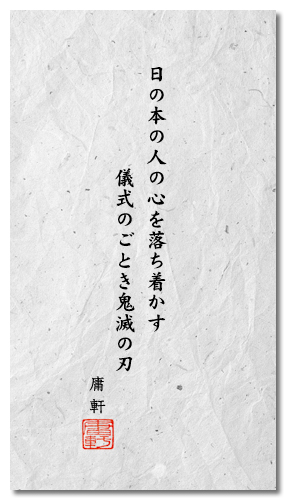 日の本の人の心を落ち着かす
儀式のごとき鬼滅の刃
庸軒
庸軒